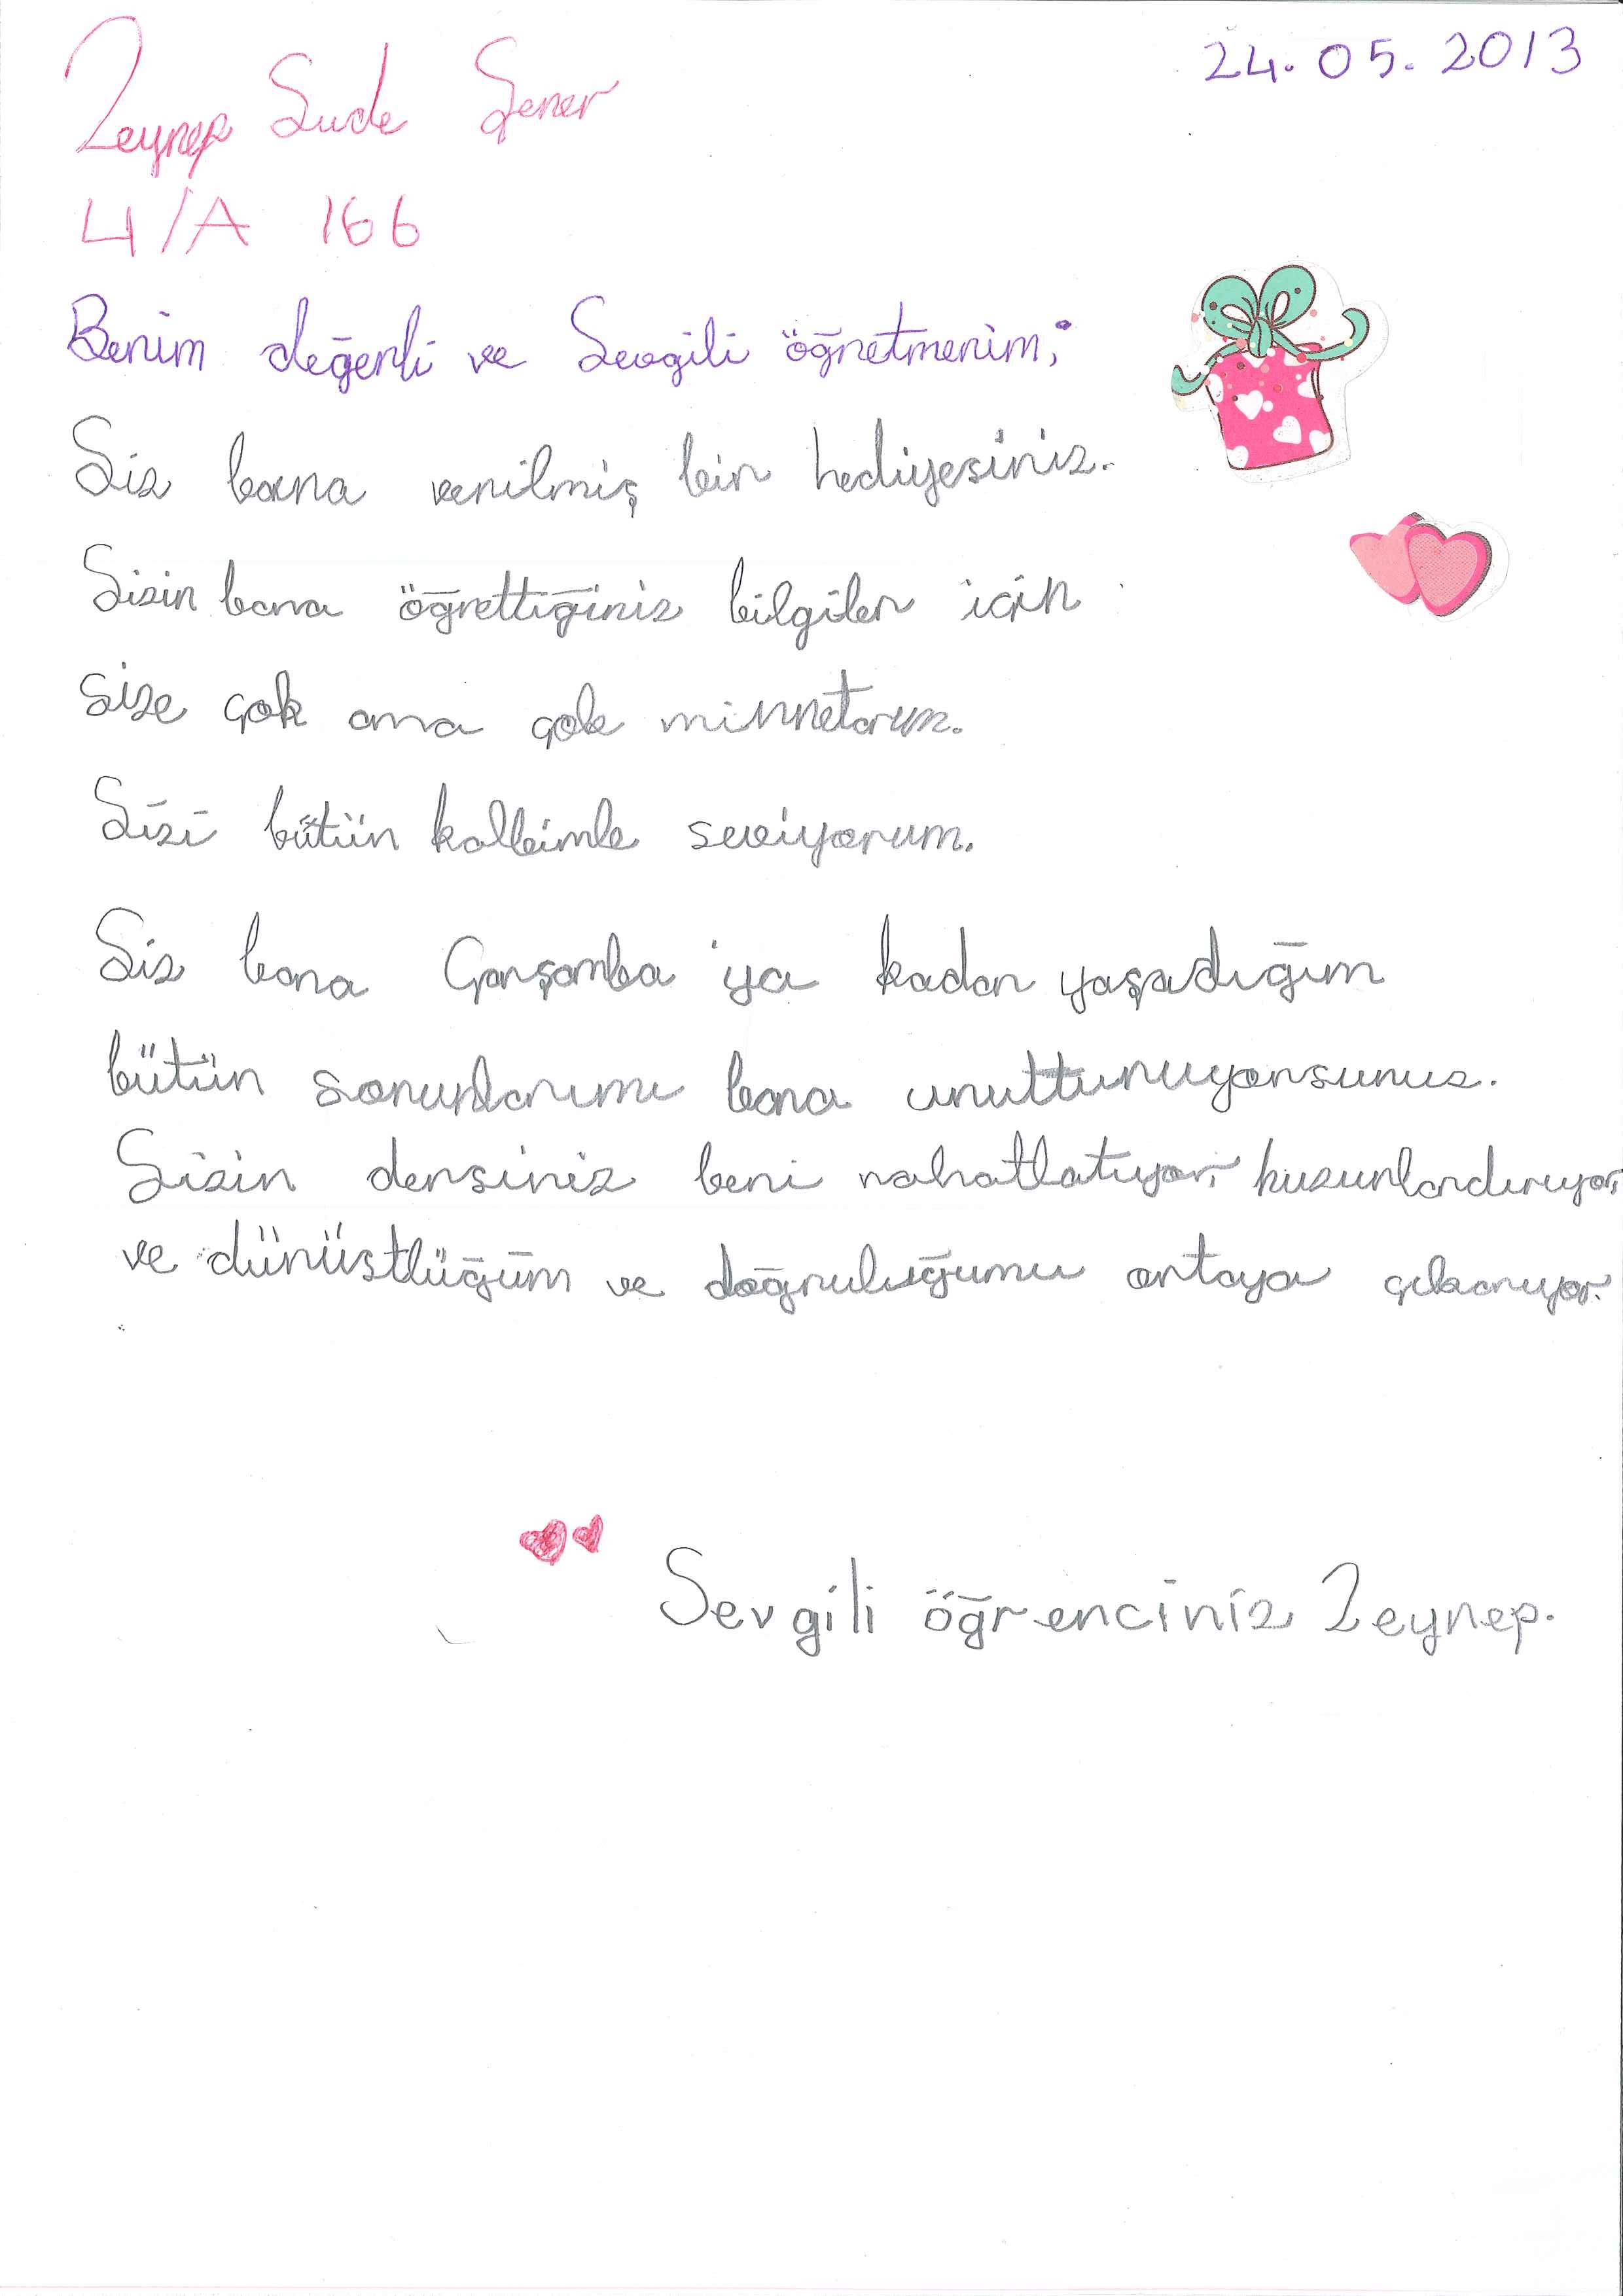 24.05.2013
Zeynep Sude Şener
4/A 166
Benim değerli ve Sevgili öğretmenim;
Siz bana verilmiş bir hediyesiniz.
Sizin bana öğrettiğiniz bilgiler için
size çok ama çok minnetarım.
Sizi bütün kalbimle seviyorum.
Siz bana Çarşamba'ya kadar yaşadığım
bütün sorunlarımı bana unutturuyorsunuz.
Sizin dersiniz beni rahatlatıyor, huzurlandırıyor,
ve dürüstlüğüm ve doğruluğumu ortaya çıkarıyor.
Sevgili öğrenciniz Zeynep.